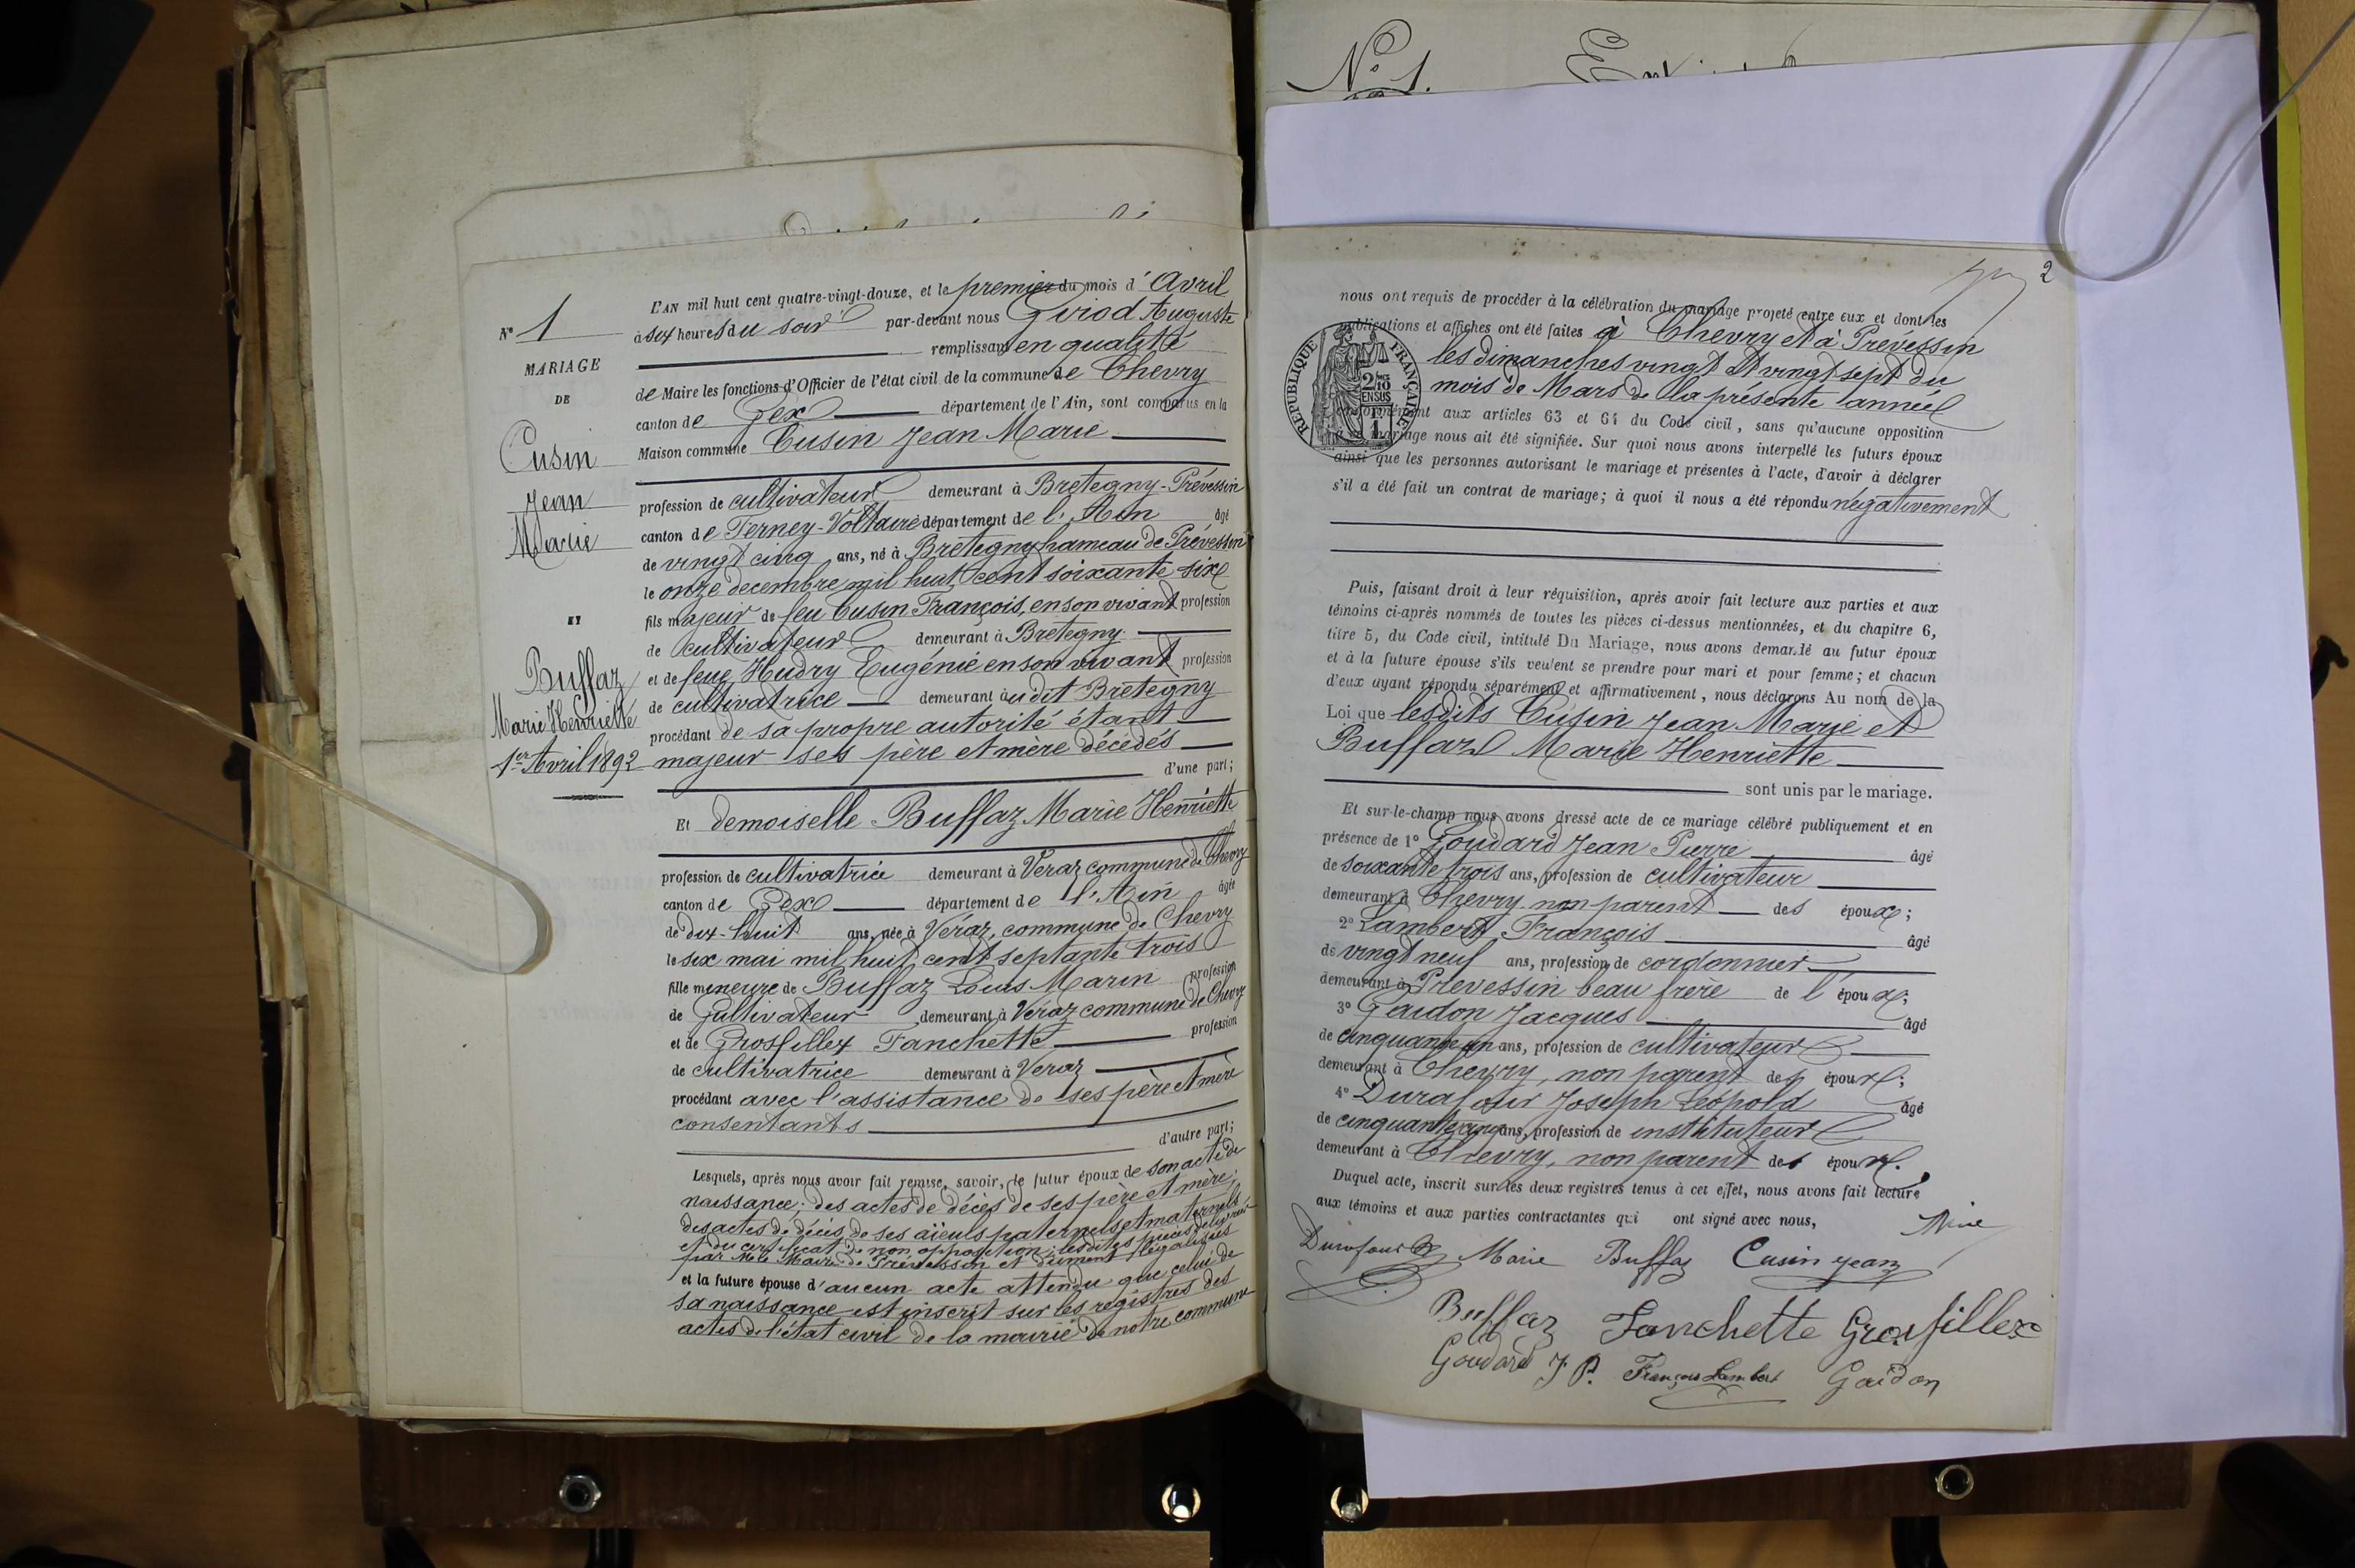 N° 1
MARIAGE
DE
Cusin
Jean
Marie
ET
Buffaz
Marie Henriette
1er Avril 1892
L'AN mil huit cent quatre-vingt-douze, et le premier du mois d' Avril
à six heures du soir par-devant nous Girod Auguste
remplissant en qualité
de Maire les fonctions d'Officier de l'état civil de la commune de Chevry
canton de Gex département de l'Ain, sont comparus en la
Maison commune Cusin Jean Marie
profession de cultivateur demeurant à Bretegny-Prévessin
canton de Ferney-Voltaire département de l'Ain âgé
de vingt cinq ans, né à Brétegny hameau de Prévessin
le onze decembre mil huit cent soixante six
fils majeur de feu Cusin François, en son vivant profession
de cultivateur demeurant à Bretegny
et de feue Hudry Eugénie en son vivant profession
de cultivatrice demeurant àudit Brétegny
procédant de sa propre autorité étant
majeur ses père et mère décédés
d'une part;
Et demoiselle Buffaz Marie Henriette
profession de cultivatrice demeurant à Veraz commune de Chevry
canton de Gex département de l'Ain âgée
de dix-huit ans, née à Véraz, commune de Chevry
le six mai mil huit cent septante trois
fille mineure de Buffaz Louis Marin profession
de Cultivateur demeurant à Véraz commune de Chevry
et de Grosfillex Fanchette profession
de cultivatrice demeurant à Veraz
procédant avec l'assistance de ses père et mère
consentants
d'autre part;
Lesquels, après nous avoir fait remise, savoir, le futur époux de son acte de
naissance; des actes de décès de ses père et mère;
des actes de décès de ses aïeuls paternels et maternels,
et du certificat de non opposition; lesdites pièces délivrées
par Mr le Maire de Prévessin et dûment légalisées
et la future épouse d'aucun acte attendu que celui de
sa naissance est inscrit sur les registres des
actes de l'état civil de la mairie de notre commune
N° 1.
2
nous ont requis de procéder à la célébration du mariage projeté entre eux et dont les
publications et affiches ont été faites à Chevry et à Prévéssin
les dimanches vingt et vingt sept du
mois de Mars de la présente année
RÉPUBLIQUE FRANÇAISE
conformément aux articles 63 et 64 du Code civil, sans qu'aucune opposition
à ce mariage nous ait été signifiée. Sur quoi nous avons interpellé les futurs époux
ainsi que les personnes autorisant le mariage et présentes à l'acte, d'avoir à déclarer
s'il a été fait un contrat de mariage; à quoi il nous a été répondu négativement
Puis, faisant droit à leur réquisition, après avoir fait lecture aux parties et aux
témoins ci-après nommés de toutes les pièces ci-dessus mentionnées, et du chapitre 6,
titre 5, du Code civil, intitulé Du Mariage, nous avons demandé au futur époux
et à la future épouse s'ils veulent se prendre pour mari et pour femme; et chacun
d'eux ayant répondu séparément et affirmativement, nous déclarons Au nom de la
Loi que lesdits Cusin Jean Marie et
Buffaz Marie Henriette
sont unis par le mariage.
Et sur-le-champ nous avons dressé acte de ce mariage célébré publiquement et en
présence de 1° Goudard Jean Pierre âgé
de soixante trois ans, profession de cultivateur
demeurant à Chevry non parent des époux;
2° Lambert François âgé
de vingt neuf ans, profession de cordonnier
demeurant à Prevessin beau frere de l'époux;
3° Gaidon Jacques âgé
de cinquante un ans, profession de cultivateur
demeurant à Chevry, non parent des époux;
4° Durafour Joseph Léopold âgé
de cinquante cinq ans, profession de instituteur
demeurant à Chevry, non parent des époux.
Duquel acte, inscrit sur les deux registres tenus à cet effet, nous avons fait lecture
aux témoins et aux parties contractantes qui ont signé avec nous,
Durafour Marie Buffaz Cusin Jean
Buffaz Fanchette Grosfillex
Goudard J P. François Lambert Gaidon